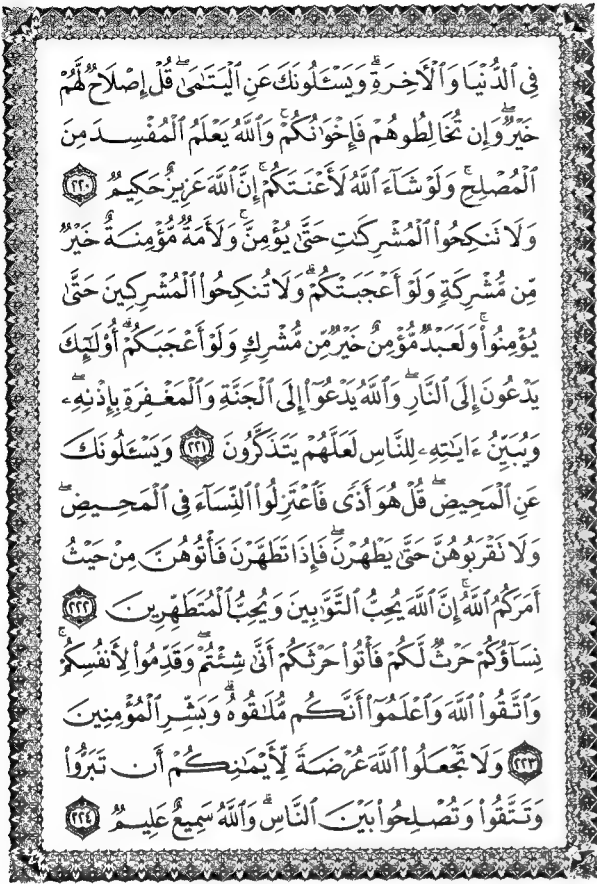 فِي ٱلدُّنْيَا وَٱلْأَخِرَةِ ۗ وَيَسْـَٔلُونَكَ عَنِ ٱلْيَتَٰمَىٰ ۖ قُلْ إِصْلَاحٌ لَّهُمْ
خَيْرٌ ۖ وَإِن تُخَالِطُوهُمْ فَإِخْوَٰنُكُمْ ۚ وَٱللَّهُ يَعْلَمُ ٱلْمُفْسِدَ مِنَ
ٱلْمُصْلِحِ ۚ وَلَوْ شَآءَ ٱللَّهُ لَأَعْنَتَكُمْ ۚ إِنَّ ٱللَّهَ عَزِيزٌ حَكِيمٌ ٢٢٠
وَلَا تَنكِحُوا۟ ٱلْمُشْرِكَٰتِ حَتَّىٰ يُؤْمِنَّ ۚ وَلَأَمَةٌ مُّؤْمِنَةٌ خَيْرٌ
مِّن مُّشْرِكَةٍ وَلَوْ أَعْجَبَتْكُمْ ۗ وَلَا تُنكِحُوا۟ ٱلْمُشْرِكِينَ حَتَّىٰ
يُؤْمِنُوا۟ ۚ وَلَعَبْدٌ مُّؤْمِنٌ خَيْرٌ مِّن مُّشْرِكٍ وَلَوْ أَعْجَبَكُمْ ۗ أُو۟لَٰٓئِكَ
يَدْعُونَ إِلَى ٱلنَّارِ ۖ وَٱللَّهُ يَدْعُوٓا۟ إِلَى ٱلْجَنَّةِ وَٱلْمَغْفِرَةِ بِإِذْنِهِۦ ۖ
وَيُبَيِّنُ ءَايَٰتِهِۦ لِلنَّاسِ لَعَلَّهُمْ يَتَذَكَّرُونَ ٢٢١ وَيَسْـَٔلُونَكَ
عَنِ ٱلْمَحِيضِ ۖ قُلْ هُوَ أَذًى فَٱعْتَزِلُوا۟ ٱلنِّسَآءَ فِي ٱلْمَحِيضِ ۖ
وَلَا تَقْرَبُوهُنَّ حَتَّىٰ يَطْهُرْنَ ۖ فَإِذَا تَطَهَّرْنَ فَأْتُوهُنَّ مِنْ حَيْثُ
أَمَرَكُمُ ٱللَّهُ ۚ إِنَّ ٱللَّهَ يُحِبُّ ٱلتَّوَّٰبِينَ وَيُحِبُّ ٱلْمُتَطَهِّرِينَ ٢٢٢
نِسَآؤُكُمْ حَرْثٌ لَّكُمْ فَأْتُوا۟ حَرْثَكُمْ أَنَّىٰ شِئْتُمْ ۖ وَقَدِّمُوا۟ لِأَنفُسِكُمْ ۚ
وَٱتَّقُوا۟ ٱللَّهَ وَٱعْلَمُوٓا۟ أَنَّكُم مُّلَٰقُوهُ ۗ وَبَشِّرِ ٱلْمُؤْمِنِينَ
٢٢٣ وَلَا تَجْعَلُوا۟ ٱللَّهَ عُرْضَةً لِّأَيْمَٰنِكُمْ أَن تَبَرُّوا۟
وَتَتَّقُوا۟ وَتُصْلِحُوا۟ بَيْنَ ٱلنَّاسِ ۗ وَٱللَّهُ سَمِيعٌ عَلِيمٌ ٢٢٤